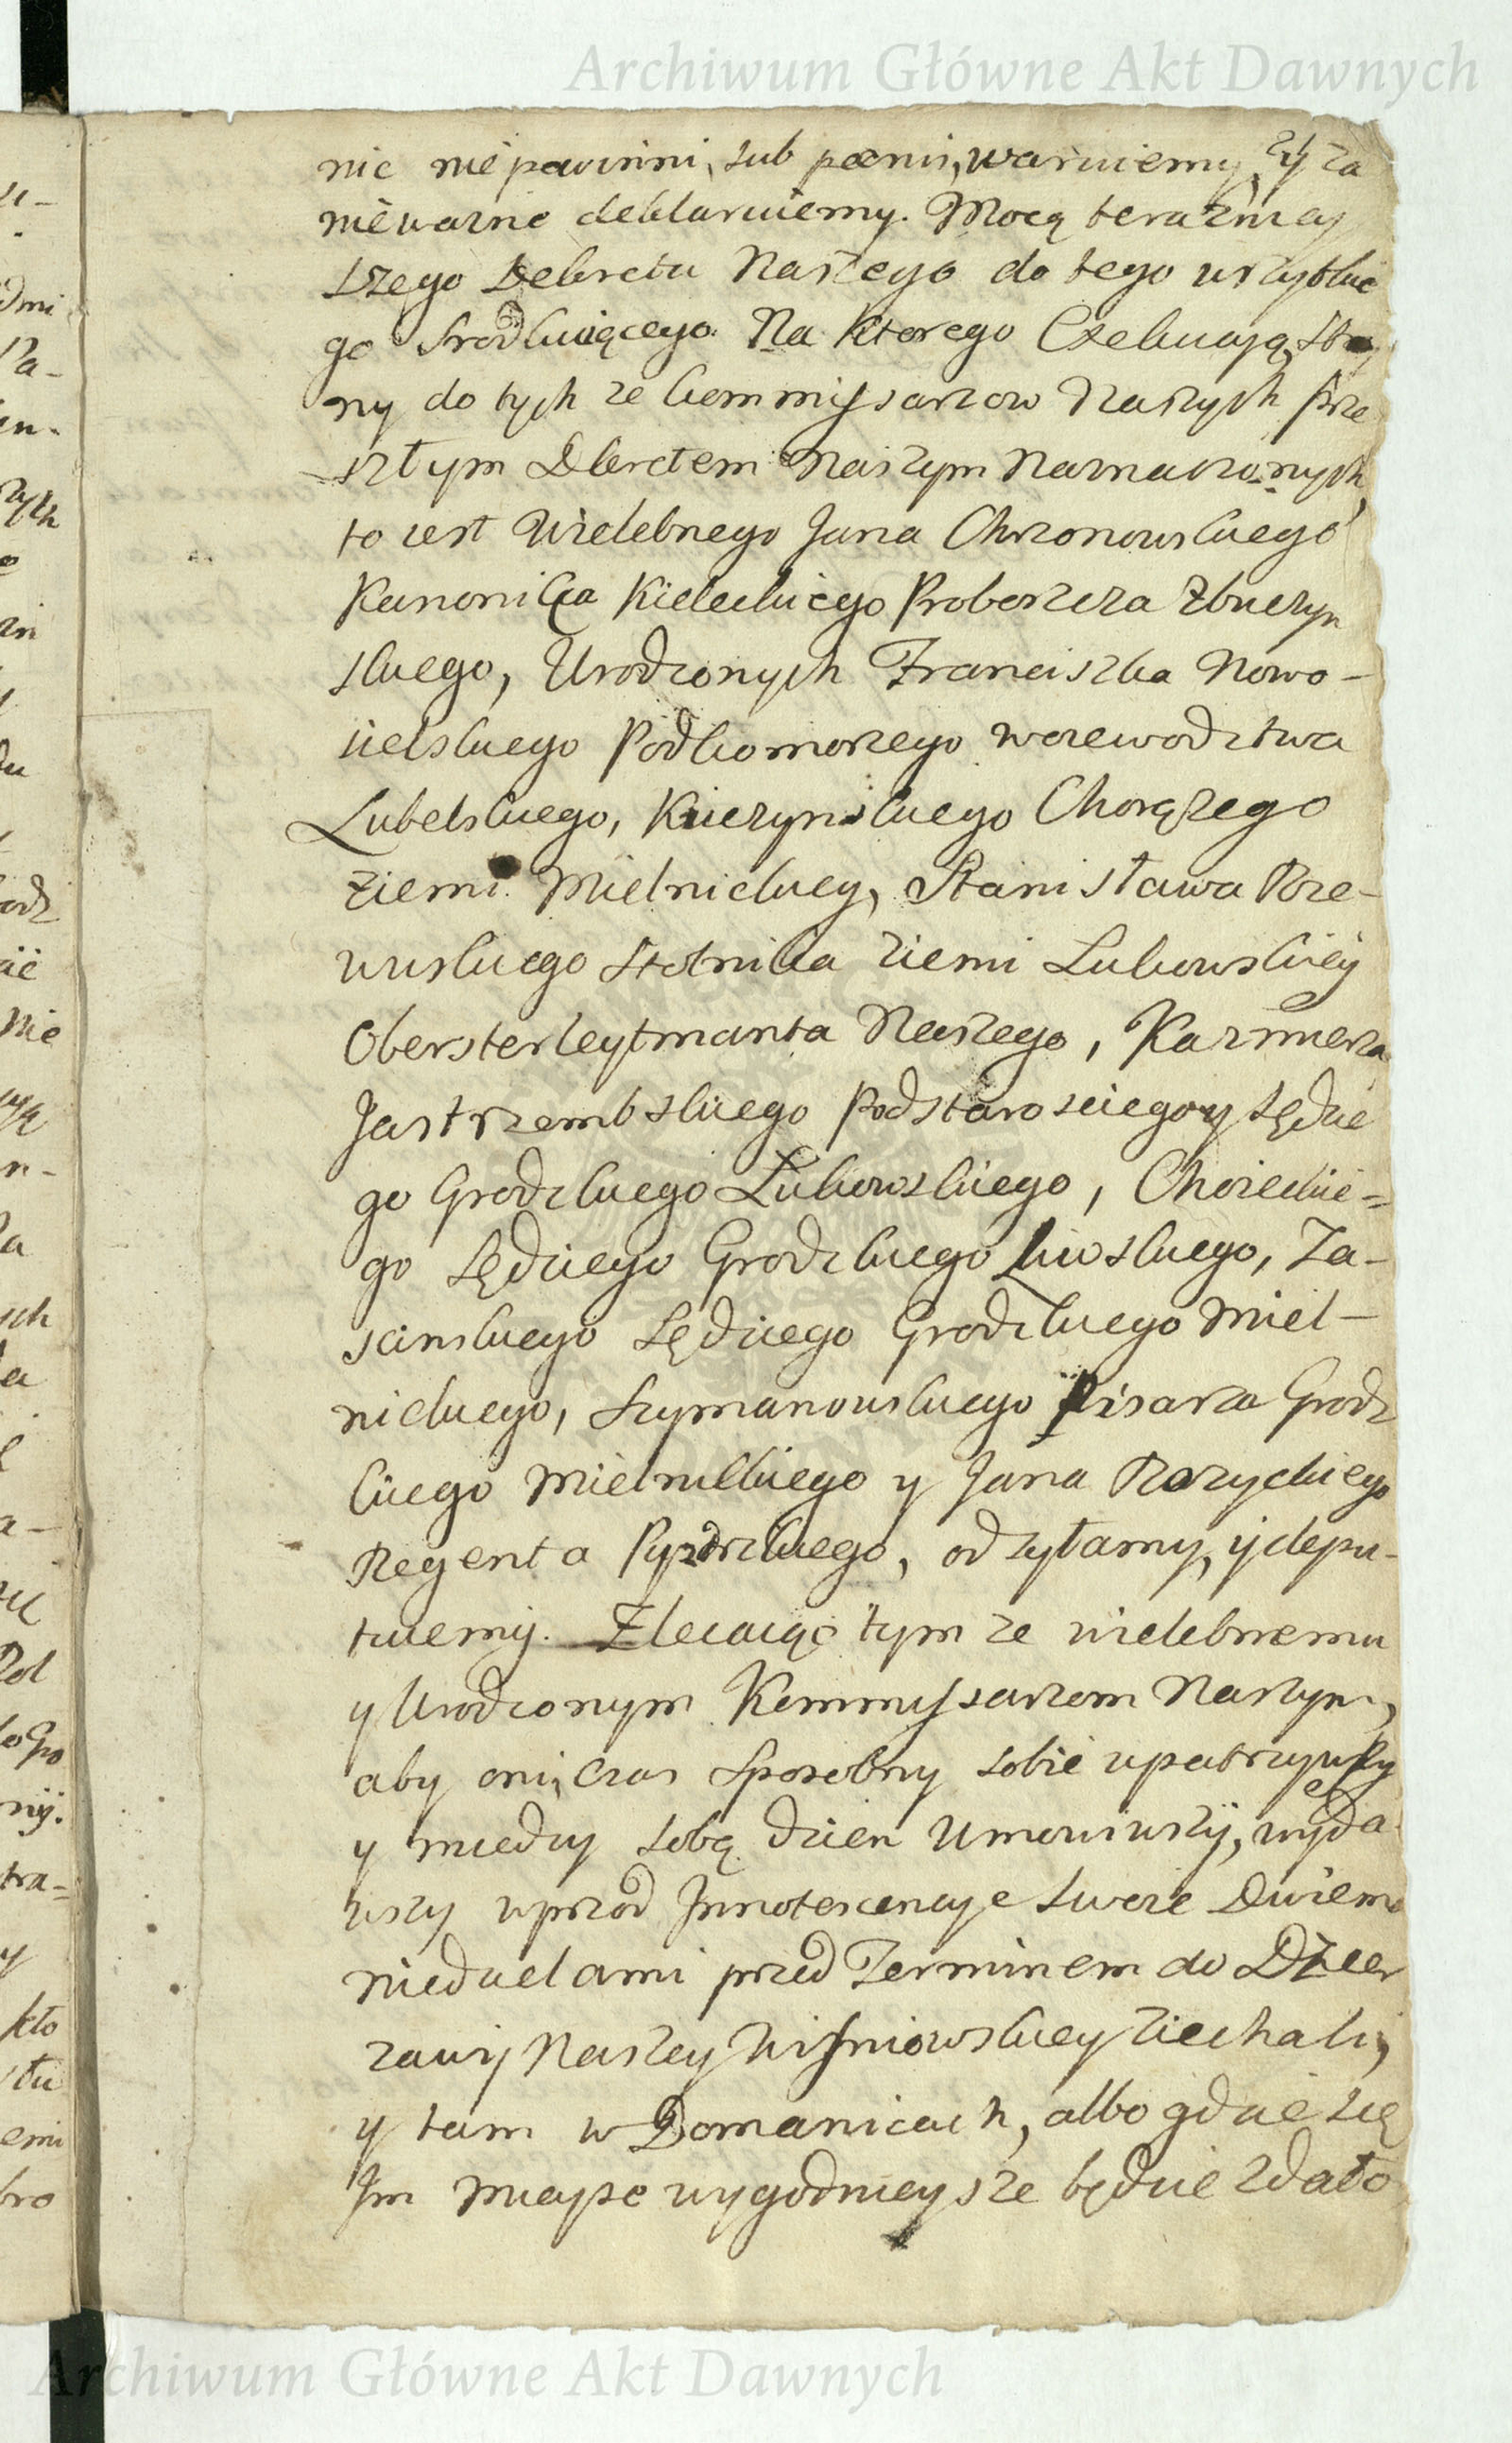 Archiwum Główne Akt Dawnych
nic nie powinni, sub poenis, waruiemy, y za
niewazne deklaruiemy. Mocą teraznieÿ
szego Dekretu Naszego do tego wszytkie
go srodkuiącego. Na ktorego Exekucyą, Stro
ny do tych ze Commissarzow Naszych prze
szłym Dekretem Naszym Naznaczonych,
to iest Wielebnego Jana Chrzonowskiego
Kanonika Kieleckiego Proboszcza Zbuczyn
skiego, Urodzonych Franciszka Nowo-
sielskiego Podkomorzego woiewodztwa
Lubelskiego, Kuczynskiego Chorązego
Ziemi Mielnickiey, Stanisława Rze-
wuskiego Stolnika Ziemi Lukowskiey
Obersterleytmanta Naszego, Kazimierza
Jastrzembskiego Podstarosciego y Sędzie
go Grodzkiego Lukowskiego, Choieckie=
go Sędziego Grodzkiego Liwskiego, Za-
scinskiego Sędziego Grodzkiego Miel-
nickiego, Szymanowskiego Pisarza Grodz
kiego Mielnickiego y Jana Rozyckiego
Regenta Pyzdrskiego, odsyłamy, y depu-
tuiemy. Zlecaiąc tym ze wielebnemu
y Urodzonym Kommissarzom Naszym,
aby oni, czas sposobny sobie upatrzywszy
y miedzy sobą dzien umowiwszy, wyda
wszy wprzod Innotescencye swoie Dwiema
niedzielami przed Terminem do Dzier
zawy Naszey Wisniowskiey ziechali,
y tam w Domanicach, albo gdzie się
Im mieysce wygodnieysze będzie zdało
Archiwum Główne Akt Dawnych